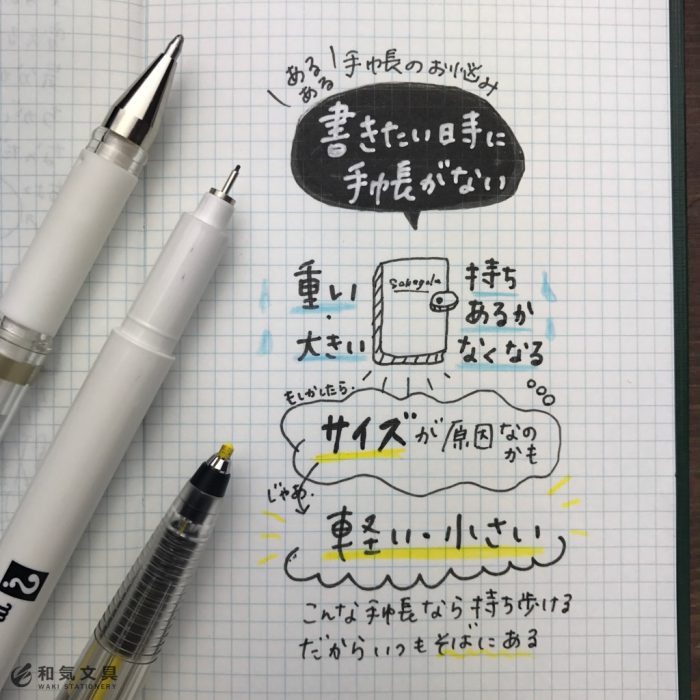 あるある 手帳のお悩み
書きたい時に
手帳がない
重い・
大きい
Sakagola
持ち
あるか
なくなる
もしかしたら・
サイズが原因なの
かも
じゃあ・
軽い・小さい
こんな手帳なら持ち歩ける
だからいつもそばにある
?
和気文具
WAKI STATIONERY